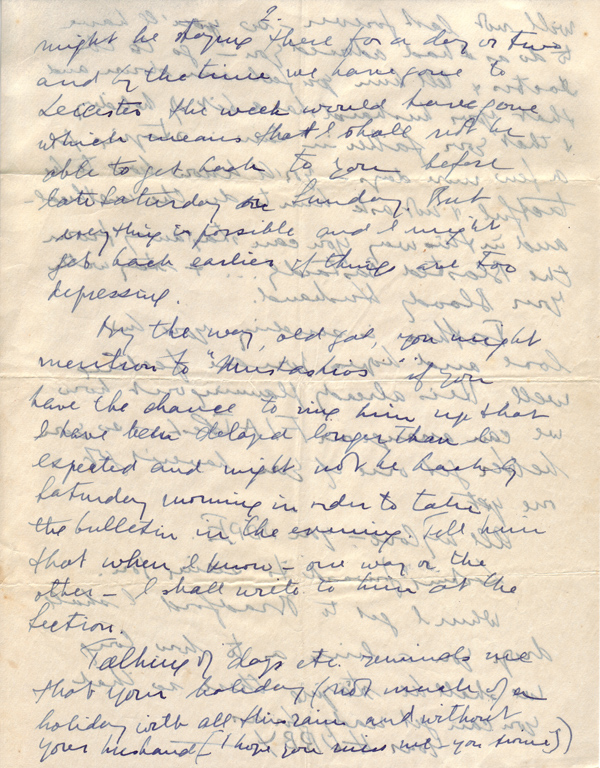 2.
might be staying there for a day or two
and by the time we have gone to
Leicester the week would have gone
which means that I shall not be
able to get back to you before
late Saturday or Sunday. But
everything is possible and I might
get back earlier if things are too
depressing.
By the way, old gal, you might
mention to "Mustashios" if you
have the chance to ring him up that
I have been delayed longer than I
expected and might not be back by
Saturday morning in order to take
the bulletin in the evening. Tell him
that when I know - one way or the
other - I shall write to him at the
Section.
Talking of days etc. reminds me
that your holiday (not much of a
holiday with all this rain and without
your husband - (I hope you miss me - you swine!)